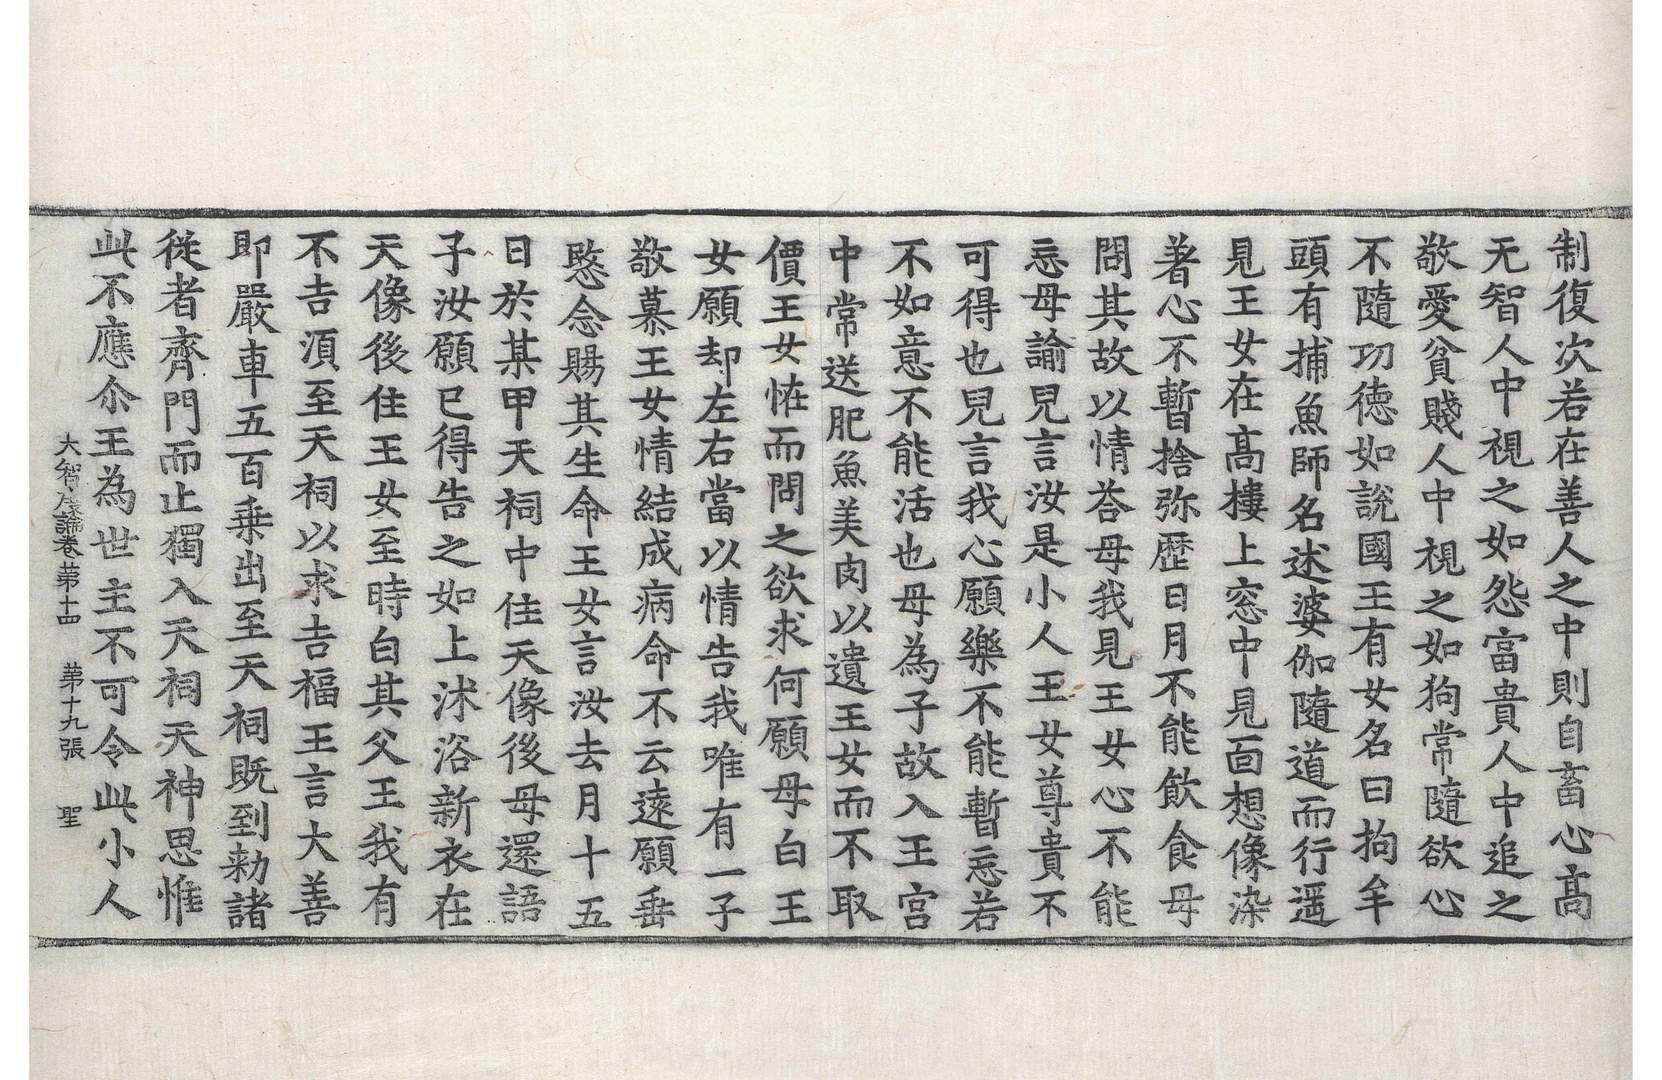 制復次若在善人之中則自畜心高
无智人中視之如怨富貴人中追之
敬愛貧賤人中視之如狗常隨欲心
不隨功德如說國王有女名曰拘牟
頭有捕魚師名述婆伽隨道而行遥
見王女在高樓上窓中見面想像染
著心不暫捨弥歷日月不能飲食母
問其故以情荅母我見王女心不能
忘母諭兒言汝是小人王女尊貴不
可得也兒言我心願樂不能暫忘若
不如意不能活也母為子故入王宮
中常送肥魚美肉以遺王女而不取
價王女恠而問之欲求何願母白王
女願却左右當以情告我唯有一子
敬慕王女情結成病命不云遠願垂
愍念賜其生命王女言汝去月十五
日於某甲天祠中住天像後母還語
子汝願已得告之如上沐浴新衣在
天像後住王女至時白其父王我有
不吉湏至天祠以求吉福王言大善
即嚴車五百乗出至天祠既到勑諸
從者齊門而止獨入天祠天神思惟
此不應尒王為世主不可令此小人
大智度論卷苐十四 苐十九張 聖